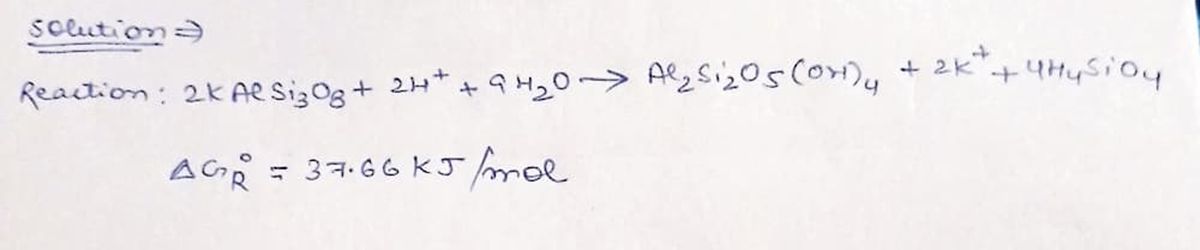 Solution ⇒
Reaction: 2KAlSi₃O₈ + 2H⁺ + 9H₂O → Al₂Si₂O₅(OH)₄ + 2K⁺ + 4H₄SiO₄
ΔG°R = 37.66 KJ/mol